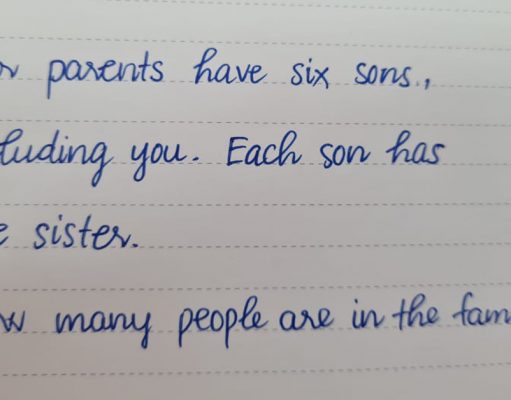 parents have six sons.,
luding you. Each son has
sister.
many people are in the fam